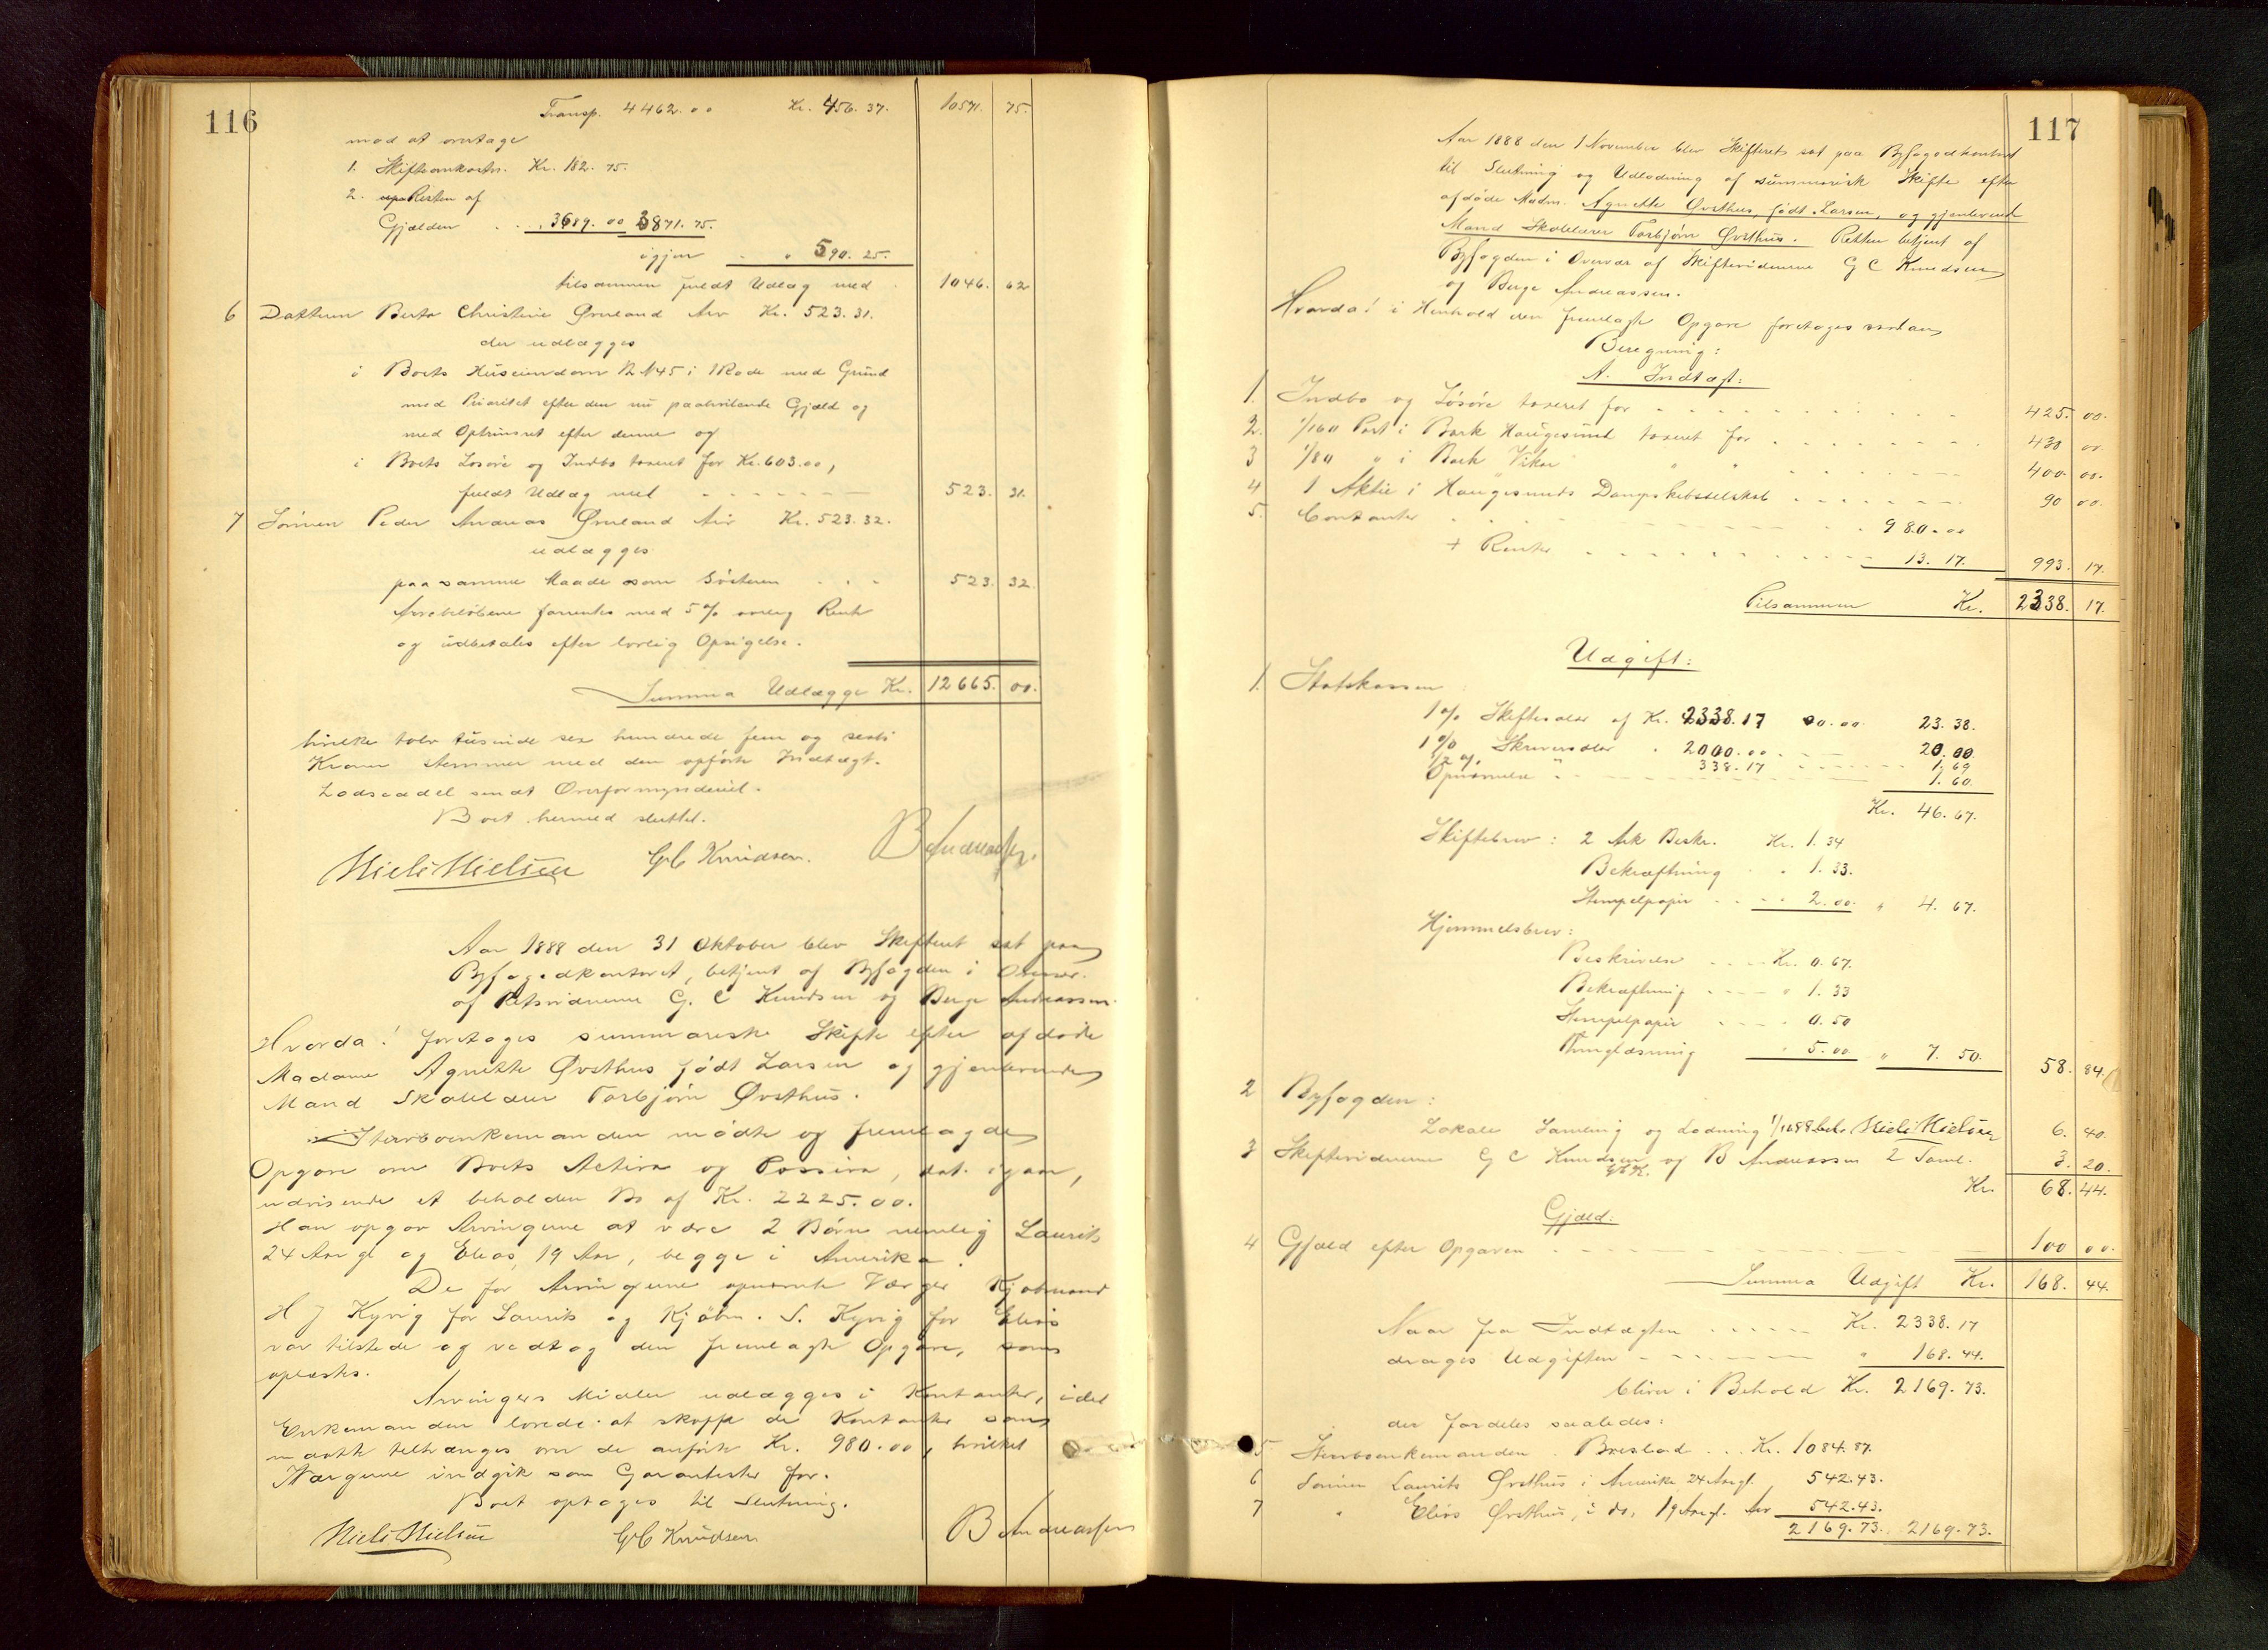 116
Transp. 4462.00 Kr. 456.37. 10571. 75.
mod at overtage
1. Skifteomkostn. Kr. 182.75.
2. Resten af
Gjælden . . „ 3689.00 3871.75.
igjen . „ 590.25.
tilsammen fuldt Udlæg med . 1046. 62
6 Datteren Berta Christine Øverland Arv Kr. 523.31.
der udlægges
i Boets Huseiendom No 145 i 1 Rode med Grund
med Prioritet efter den nu paahvilende Gjæld og
med Optrinsret efter denne og
i Boets Løsøre og Indbo taxeret for Kr. 603.00,
fuldt Udlæg med . . . . . . 523. 31.
7 Sønnen Peder Andreas Øverland Arv Kr. 523.32.
udlægges
paa samme Maade som Søsteren . . . 523. 32.
Arvebeløbene forrentes med 5% aarlig Rente
og udbetales efter lovlig Opsigelse.
Summa Udlægge Kr. 12665. 00.
hvilke tolv tusinde sex hundrede fem og sexti
Kroner stemmer med den opførte Indtægt.
Lodseddel sendt Overformynderiet.
Boet hermed sluttet.
Niels Nielsen GC Knudsen. B Andreassen.
Aar 1888 den 31 Oktober blev Skifteret sat paa
Byfogedkontoret, betjent af Byfogden i Overvær
af Retsvidnerne G. C Knudsen og Berge Andreassen.
Hvorda! foretoges summariske Skifte efter afdøde
Madame Agnethe Øvsthus født Larsen og gjenlevende
Mand Skolelærer Torbjørn Øvsthus.
Stervboenkemanden mødte og fremlagde
Opgave over Boets Activa og Passiva, dat. igaar,
udvisende et beholden Bo af Kr. 2225.00.
Han opgav Arvingerne at være 2 Børn nemlig Laurits
24 Aar gl og Elias, 19 Aar, begge i Amerika.
De for Arvingerne opnævnte Værger Kjøbmand
H J Kyvig for Laurits og Kjøbm. S. Kyvig for Elias
var tilstede og vedtog den fremlagte Opgave, som
oplæstes.
Arvingers Midler udlægges i Kontanter, idet
Enkemanden lovede at skaffe de Kontanter som
maatte tiltrænges over de anførte Kr. 980.00, hvilket
Værgerne indgik som Garantister for.
Boet optoges til Slutning.
Niels Nielsen GC Knudsen B Andreassen
117
Aar 1888 den 1 November blev Skifteret sat paa Byfogedkontoret
til Slutning og Udlodning af summarisk Skifte efter
afdøde Madm. Agnethe Øvsthus, født Larsen, og gjenlevende
Mand Skolelærer Torbjørn Øvsthus. Retten betjent af
Byfogden i Overvær af Skiftevidnerne G C Knudsen
og Berge Andreassen.
Hvorda! i Henhold den fremlagte Opgave foretoges saadan
Beregning:
A. Indtægt:
1. Indbo og Løsøre taxeret for . . . . . . . 425. 00.
2. 1/160 Part i Bark Haugesund taxeret for . . . . . 430 00.
3 1/80 „ i Bark Vikar „ „ . . . . . 400. 00.
4 1 Aktie i Haugesunds Dampskibsselskab . . . . . . 90 00.
5. Contanter . . . . . . . . . 980.00
+ Renter . . . . . . . . 13. 17. 993. 17.
Tilsammen Kr. 2338. 17.
Udgift:
1. Statskassen
1% Skiftesalær af Kr. 2338.17 23. 38.
1% Skriversalær „ 2000.00 . . 20. 00.
1/2 % „ 338.17 . . . . 1. 69
Opnævnelse . . . . . . . 1. 60.
Kr. 46. 67.
Skiftebrev: 2 Ark Beskr. Kr. 1. 34
Bekræftning . „ 1. 33.
Stempelpapir . . . „ 2.00. „ 4. 67.
Hjemmelsbrev:
Beskrivelse . . . Kr. 0. 67.
Bekræftning . . . . „ 1. 33
Stempelpapir . . . . 0. 50
Thinglæsning „ 5.00 „ 7. 50. 58. 84.
2 Byfogden:
Lokale Samling og Lodning 1/11 88 bet. Niels Nielsen 6. 40.
3 Skiftevidnerne G C Knudsen og B Andreassen 2 Saml. 3. 20.
GCK.
Kr. 68. 44.
Gjæld:
4 Gjæld efter Opgaven . . . . . . . 100 00.
Summa Udgift Kr. 168. 44.
Naar fra Indtægten . . . . . Kr. 2338. 17
drages Udgiften . . . . . . „ 168. 44.
bliver i Behold Kr. 2169. 73.
der fordeles saaledes:
5 Stervboenkemanden Boeslod . . . Kr. 1084. 87.
6 Sønnen Laurits Øvsthus i Amerika 24 Aar gl. 542.43.
7 „ Elias Øvsthus, i do, 19 Aar gl. Arv 542.43.
2169.73. 2169.73.